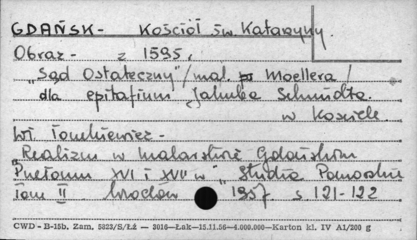 GDAŃSK - Kościół św. Katarzyny
Obraz - z 1595.
"Sąd Ostateczny" /mal. Moellera/
dla epitafium Jakuba Schmidta.
w Kościele.
Wł. Tomkiewicz -
"Realizm w malarstwie Gdańskim
Przełomu XVI i XVII w" Studia Pomorskie
Tom II Wrocław 1957. s 121-122
CWD - B-15b. Zam. 5823/S/Łź — 3016—Łak—15.11.56—4.000.000—Karton kl. IV A1/200 g